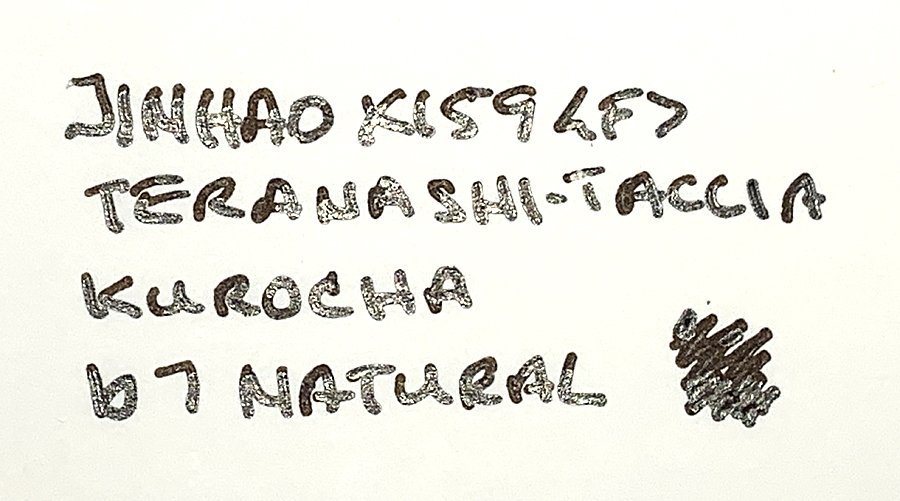 JINHAO X159 <F>
TERANASHI-TACCIA
KUROCHA
b7 NATURAL